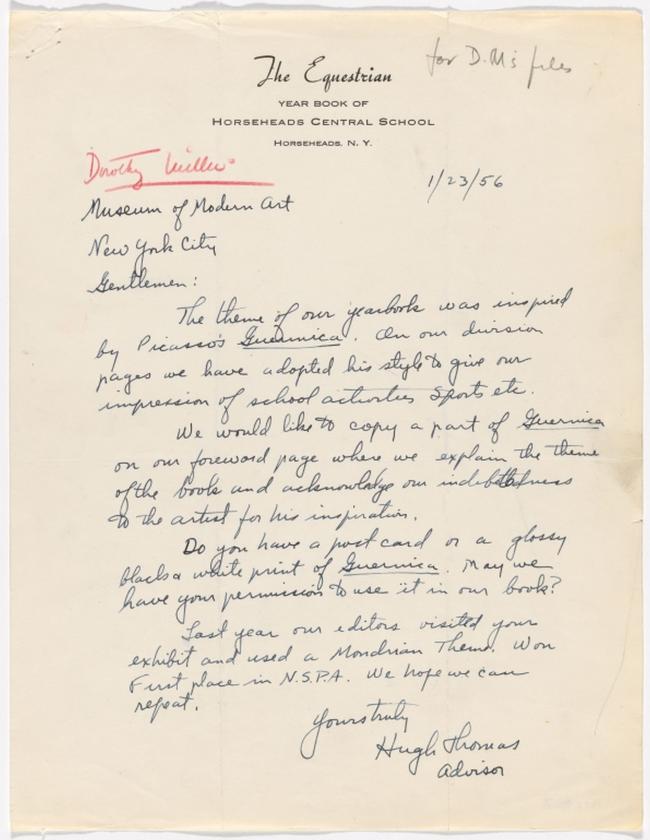 for D.M's files
The Equestrian
YEAR BOOK OF
HORSEHEADS CENTRAL SCHOOL
HORSEHEADS, N. Y.
Dorothy Miller
1/23/56
Museum of Modern Art
New York City
Gentlemen:
The theme of our yearbook was inspired
by Picasso's Guernica. On our division
pages we have adopted his style to give our
impression of school activities sports etc.
We would like to copy a part of Guernica
on our foreword page where we explain the theme
of the book and acknowledge our indebtedness
to the artist for his inspiration.
Do you have a post card or a glossy
black & white print of Guernica. May we
have your permission to use it in our book?
Last year our editors visited your
exhibit and used a Mondrian Theme. Won
First place in N.S.P.A. We hope we can
repeat.
Yours truly
Hugh Thomas
Advisor